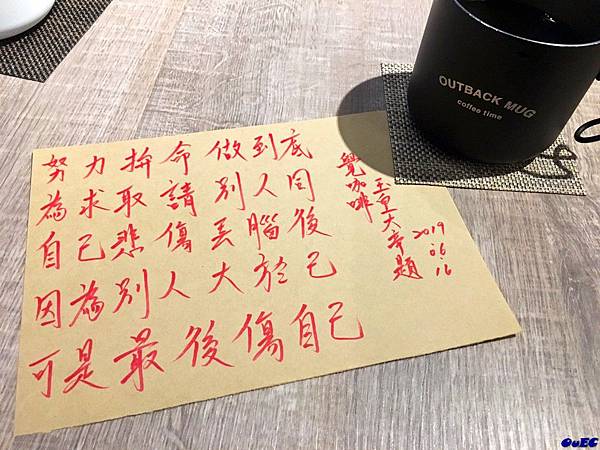 努力拚命做到底
為求取請別人同
自己悲傷丟腦後
因為別人大於己
可是最後傷自己
覺咖啡
重大題
2019.06.16
OUTBACK MUG
coffee time
OuEC